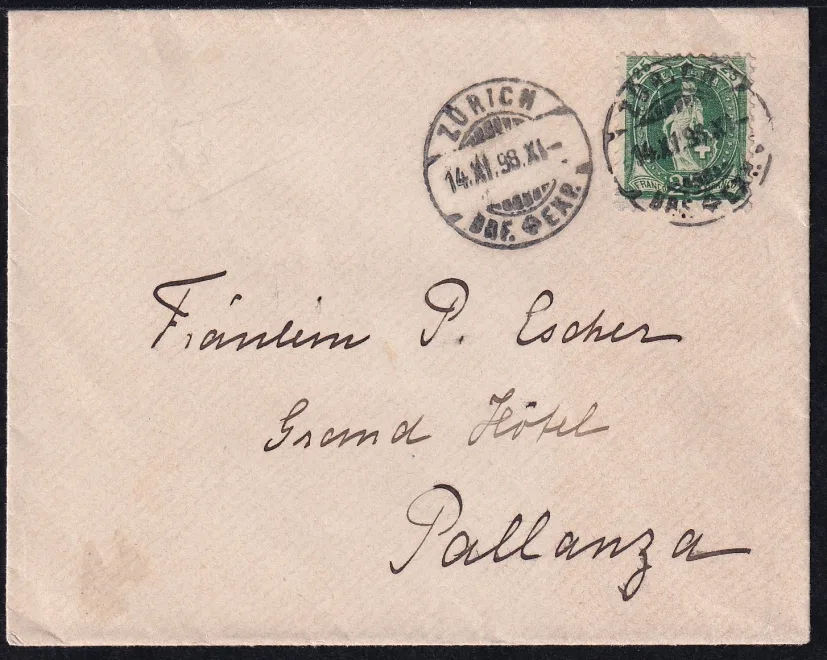 ZÜRICH
14.XI.98.XI–
BRF. EXP.
25
ZÜRICH
14.XI.98.XI–
BRF. EXP.
FRANCO
Fräulein P. Escher
Grand Hôtel
Pallanza